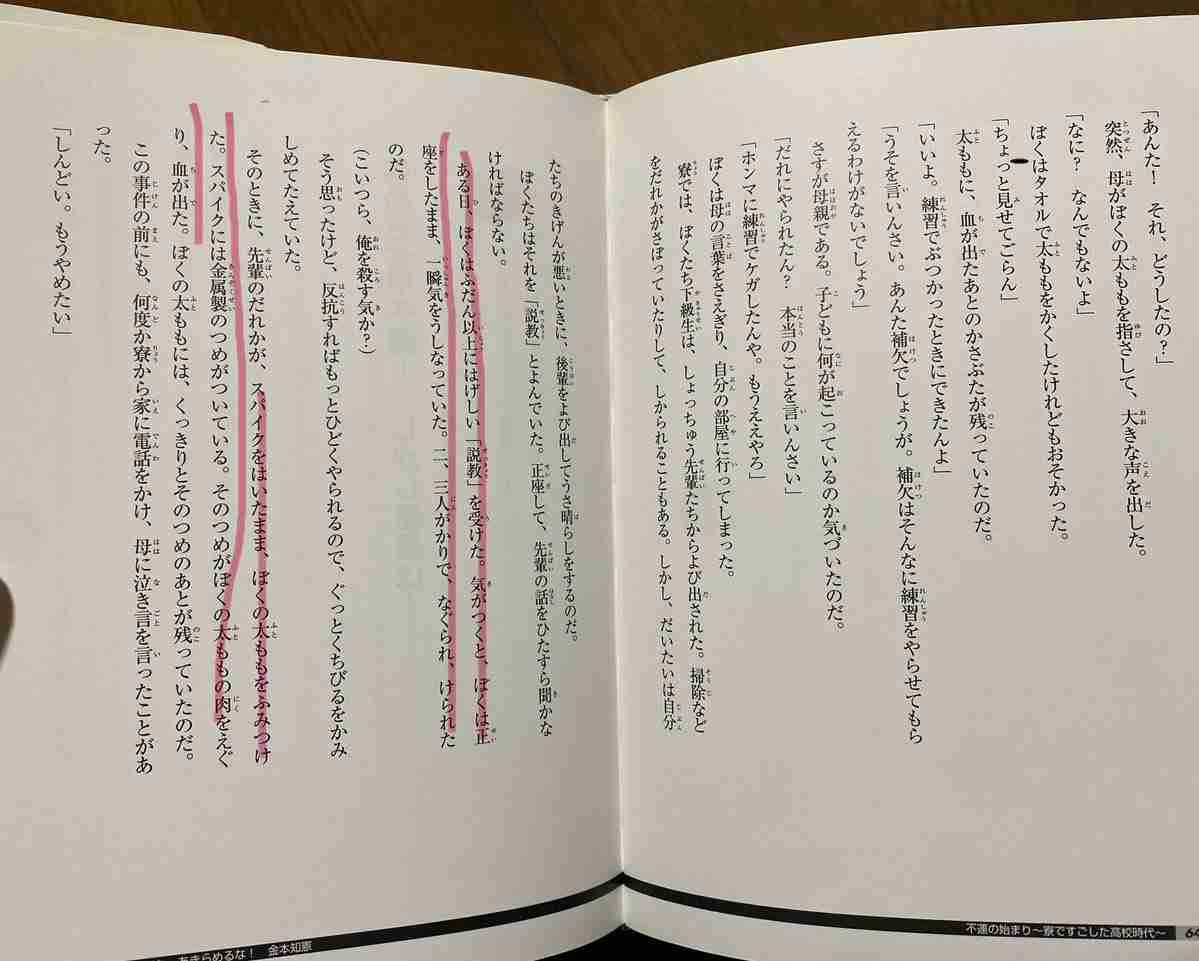 「あんた！　それ、どうしたの？」
突然、母がぼくの太ももを指さして、大きな声を出した。
「なに？　なんでもないよ」
ぼくはタオルで太ももをかくしたけれどもおそかった。
「ちょっと見せてごらん」
太ももに、血が出たあとのかさぶたが残っていたのだ。
「いいよ。練習でぶつかったときにできたんよ」
「うそを言いんさい。あんた補欠でしょうが。補欠はそんなに練習をやらせてもら
えるわけがないでしょう」
さすが母親である。子どもに何が起こっているのか気づいたのだ。
「だれにやられたん？　本当のことを言いんさい」
「ホンマに練習でケガしたんや。もうええやろ」
ぼくは母の言葉をさえぎり、自分の部屋に行ってしまった。
寮では、ぼくたち下級生は、しょっちゅう先輩たちからよび出された。掃除など
をだれかがさぼっていたりして、しかられることもある。しかし、だいたいは自分
不運の始まり〜寮ですごした高校時代〜
64
たちのきげんが悪いときに、後輩をよび出してうさ晴らしをするのだ。
ぼくたちはそれを「説教」とよんでいた。正座して、先輩の話をひたすら聞かな
ければならない。
ある日、ぼくはふだん以上にはげしい「説教」を受けた。気がつくと、ぼくは正
座をしたまま、一瞬気をうしなっていた。二、三人がかりで、なぐられ、けられた
のだ。
（こいつら、俺を殺す気か？）
そう思ったけど、反抗すればもっとひどくやられるので、ぐっとくちびるをかみ
しめてたえていた。
そのときに、先輩のだれかが、スパイクをはいたまま、ぼくの太ももをふみつけ
た。スパイクには金属製のつめがついている。そのつめがぼくの太ももの肉をえぐ
り、血が出た。ぼくの太ももには、くっきりとそのつめのあとが残っていたのだ。
この事件の前にも、何度か寮から家に電話をかけ、母に泣き言を言ったことがあ
った。
「しんどい。もうやめたい」
あきらめるな！　金本知憲